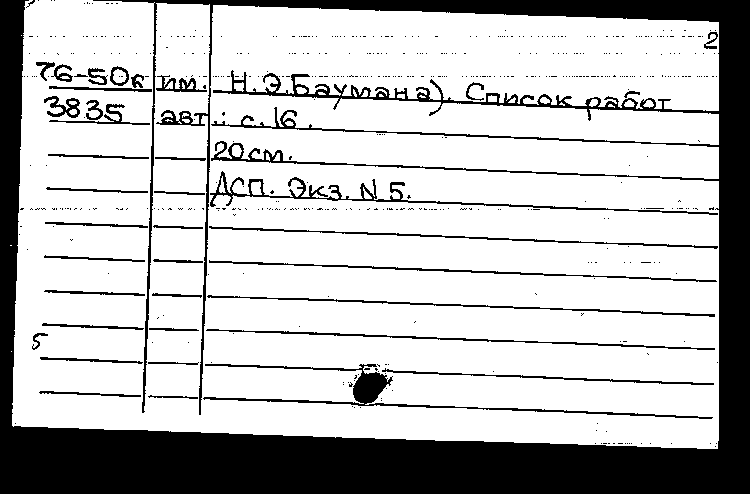 2
76-50к им. Н.Э.Баумана). Список работ
3835 авт.: с.16.
20см.
ДСП. Экз. N 5.
5